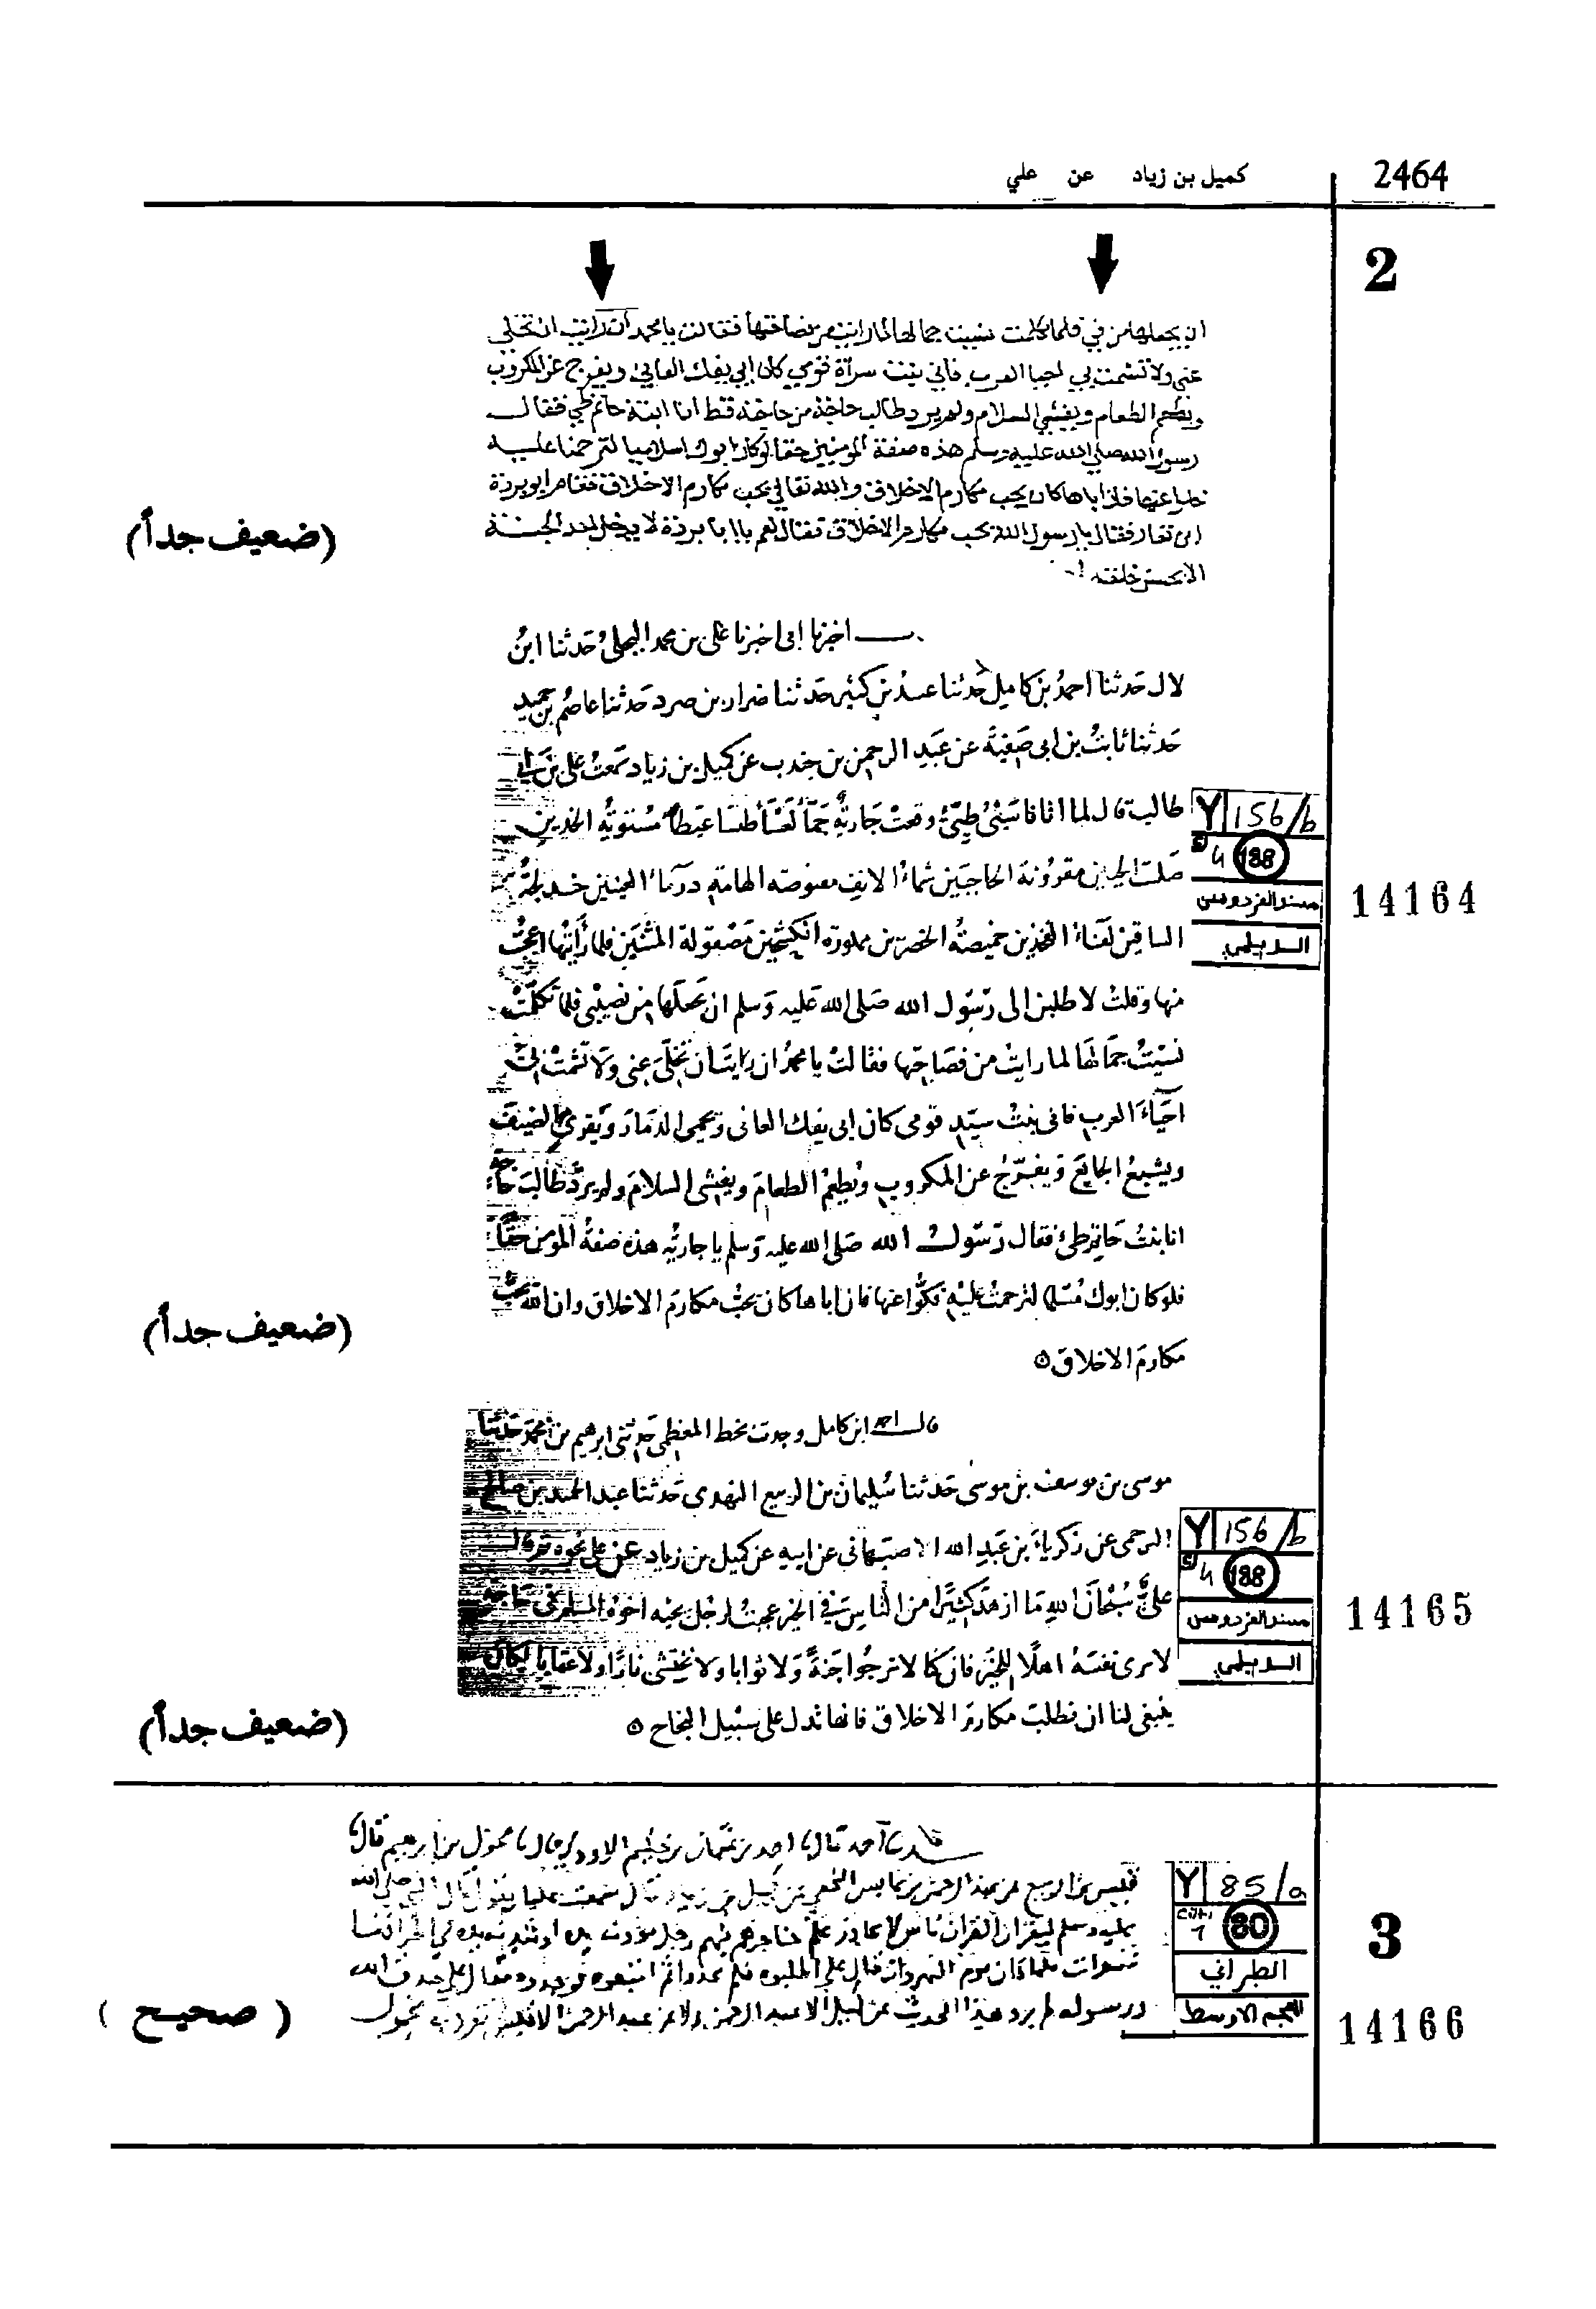 2464
كميل بن زياد عن علي
2
ان يجعلها من في فلما تكلمت نسيت جمالها لما رايت من فصاحتها فقالت يا محمد ان رايت ان تخلي
عني ولا تشمت بي احيا العرب فاني بنت سراة قومي كان ابي يفك العاني ويفرج عن المكروب
ويطعم الطعام ويفشي السلام ولم يرد طالب حاجة من حاجة قط انا ابنة حاتم طي فقال
رسول الله صلي الله عليه وسلم هذه صفة المومنين حقا لو كان ابوك اسلاميا لترحمنا عليه
خلوا عنها فان اباها كان يحب مكارم الاخلاق والله تعالي يحب مكارم الاخلاق فقام ابو بردة
ابن نيار فقال يا رسول الله يحب مكارم الاخلاق فقال نعم يا ابا بردة لا يدخل احد الجنة
الا بحسن خلقه
(ضعيف جداً)
اخبرنا ابى اخبرنا على بن محمد البجلي حدثنا ابن
لال حدثنا احمد بن كامل حدثنا عبيد بن كثير حدثنا ضرار بن صرد حدثنا عاصم بن حميد
حدثنا ثابت بن ابى صفية عن عبد الرحمن بن جندب عن كميل بن زياد سمعت على بن ابى
طالب قال لما اتانا سبى طيئ وقعت جارية جماء لعساء عيطاء مستوية الخدين
صلت الجبين مقرونة الحاجبين شماء الانف الهامة درماء الكعبين خدلجة
الساقين لفاء الفخذين خميصة الخصرين مصقولة المتنين فلما رأيتها اعجبت
منها وقلت لاطلبن الى رسول الله صلى الله عليه وسلم ان يجعلها من نصيبى فلما تكلمت
نسيت جمالها لما رايت من فصاحتها فقالت يا محمد ان رايت ان تخلى عنى ولا تشمت بى
احياء العرب فانى بنت سيد قومى كان ابى يفك العانى ويحمى الذمار ويقرى الضيف
ويشبع الجايع ويفرج عن المكروب ويطعم الطعام ويفشى السلام ولم يرد طالب حاجة
انا بنت حاتم طئ فقال رسول الله صلى الله عليه وسلم يا جارية هذه صفة المومن حقا
فلو كان ابوك مسلما لترحمت عليه خلوا عنها فان اباها كان يحب مكارم الاخلاق وان الله يحب
مكارم الاخلاق
Y 156/b
4 188
مسند الفردوس
الديلمي
14164
(ضعيف جداً)
قال احمد ابن كامل وجدت بخط حدثنى ابرهيم بن محمد حدثنا
موسى بن يوسف بن موسى حدثنا سليمان بن الربيع النهدى حدثنا عبد الحميد بن صالح
البرجمى عن زكرياء بن عبد الله الاصبهانى عن ابيه عن كميل بن زياد عن على نحوه
على سبحان الله ما ازهد كثيرا من الناس فى الخير عجبت لرجل يجيه اخوه المسلم فى حاجة
لا يرى نفسه اهلا للخير فان كنا لا نرجوا جنة ولا ثوابا ولا نخشى نارا ولا عقابا لكان
ينبغى لنا ان نطلب مكارم الاخلاق فانها تدل على سبيل النجاح
Y 156/b
4 188
مسند الفردوس
الديلمي
14165
(ضعيف جداً)
3
حدثنا احمد قال نا احمد بن عثمان بن حكيم الاودي قال نا مخول بن ابرهيم قال نا
قيس بن الربيع عن عبد الرحمن بن عابس النخعي عن كميل بن زياد قال سمعت عليا يقول قال النبي صلي الله
عليه وسلم ليقران القران ناس لا يجاوز حناجرهم فيهم رجل مودن يده او مثدن يده
فلما كان يوم النهروان قال علي اطلبوه فلم يجدوا ثم اتبعوه فوجدوه فقال علي صدق الله
ورسوله لم يرو هذا الحديث عن كميل الا عبد الرحمن ولا عن عبد الرحمن الا قيس تفرد به مخول
Y 85/a
1 80
الطبراني
المعجم الاوسط
14166
(صحيح)